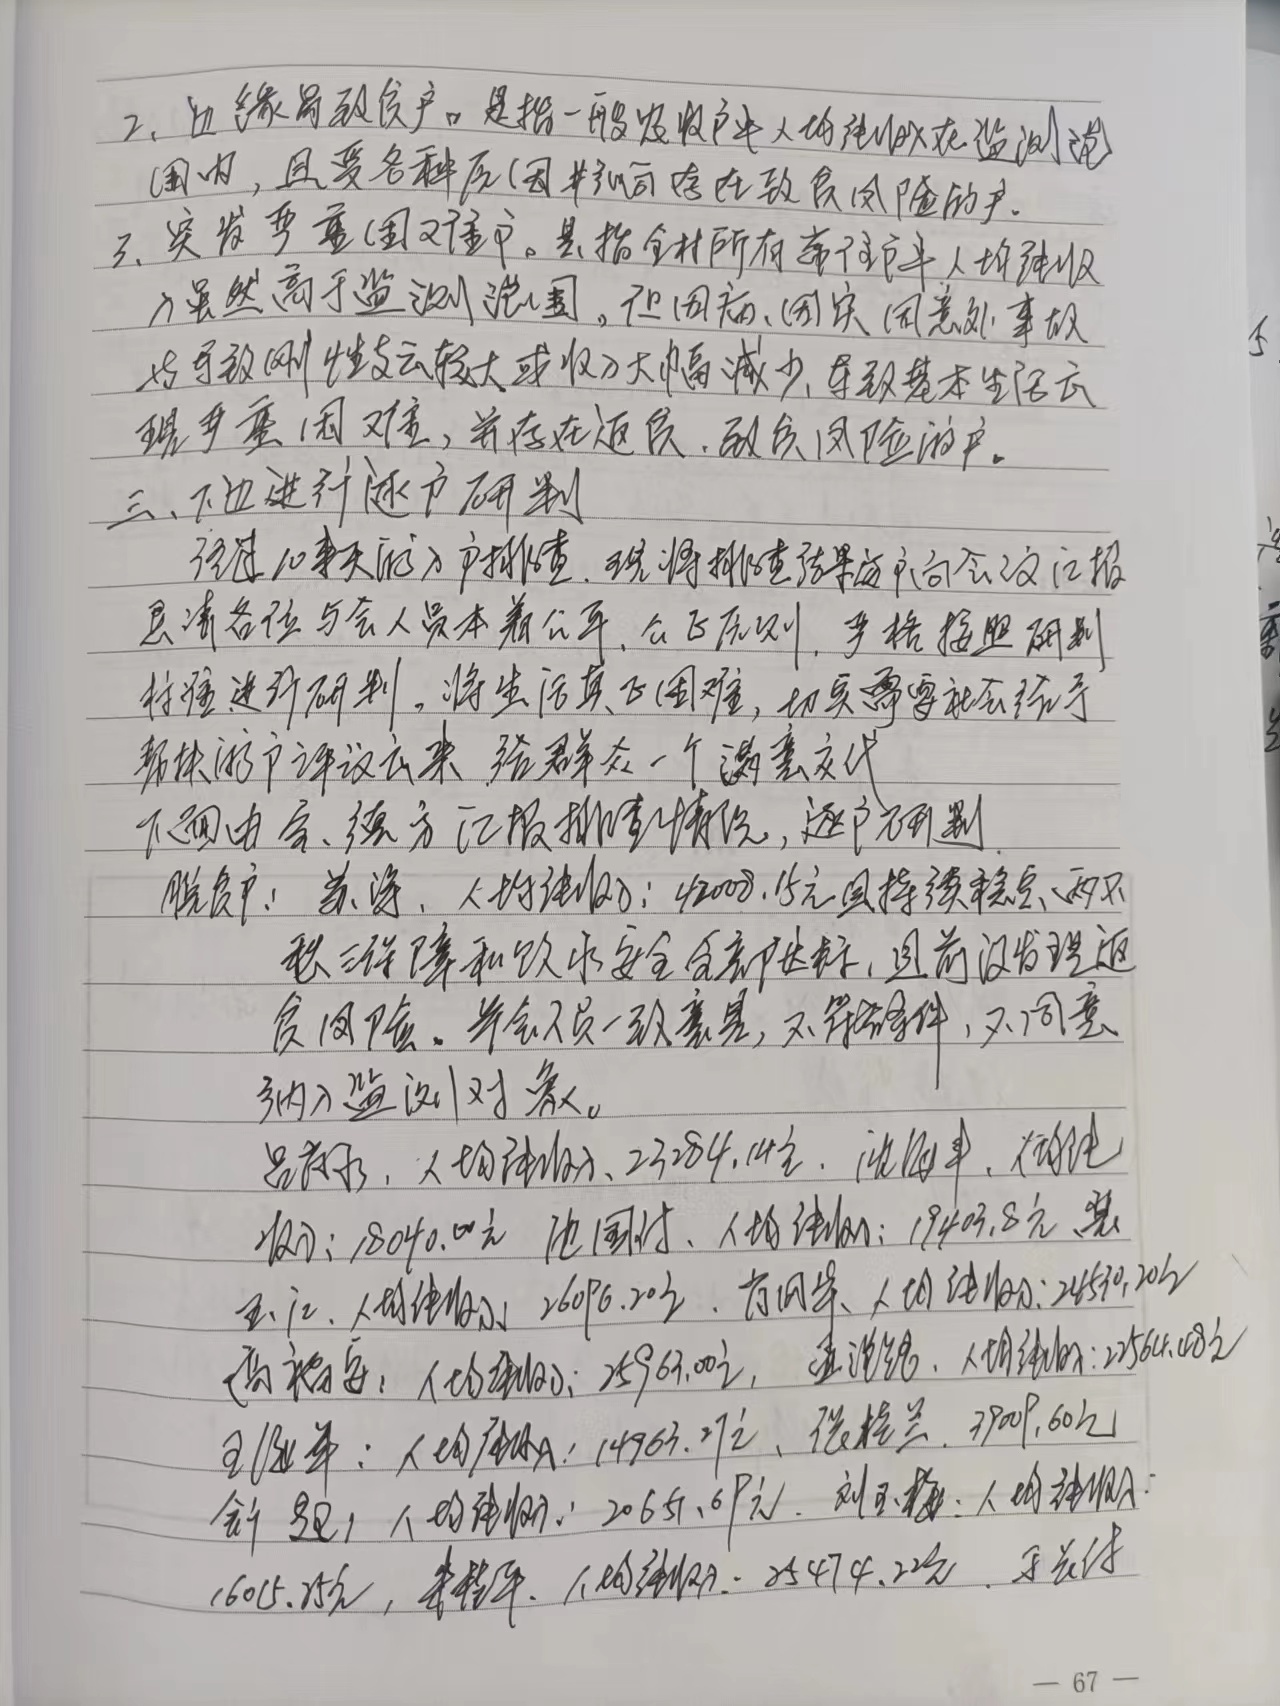 2、边缘易致贫户。是指一般农户年人均纯收入在监测范
围内,且受各种原因影响存在致贫风险的户。
3、突发严重困难户。是指全村所有常住户年人均纯收
入虽然高于监测范围,但因病、因灾因意外事故
等导致刚性支出较大或收入大幅减少,导致基本生活出
现严重困难,并存在返贫、致贫风险的户。
三、下边进行逐户研判
经过10来天的入户排查,现将排查结果逐户向会议汇报
恳请各位与会人员本着公平、公正原则,严格按照研判
标准进行研判。将生活真正困难,切实需要社会给予
帮扶的户评议出来 给群众一个满意交代
下面由 汇报排查情况,逐户研判
脱贫户:苏海、人均纯收入:42008.15元且持续稳定、两不
愁三保障和饮水安全全部达标,且前没发现返
贫风险。与会人员一致意见,不符合条件,不同意
纳入监测对象。
人均纯收入、23284.14元. 人均纯
收入:18040.00元 池国付、人均纯收入:19403.8元
人均纯收入:26096.20元、 人均纯收入:24530.20元
人均纯收入:25963.00元, 人均纯收入:22564.48元
人均纯收入:14963.27元、张桂兰、39009.60元
人均纯收入:20651.69元. 刘玉梅:人均纯收入:
16015.25元, 人均纯收入:25474.22元、
— 67 —